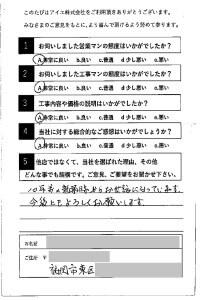 このたびはアイエ株式会社をご利用頂きありがとうございます。
みなさまのご意見をもとに、より喜んで頂けるよう努めて参ります。
1 お伺いしました営業マンの態度はいかがでしたか？
A 非常に良い b.良い c.普通 d 少し悪い e.悪い
2 お伺いしました工事マンの態度はいかがでしたか？
A 非常に良い b.良い c.普通 d 少し悪い e.悪い
3 工事内容や価格の説明はいかがでしたか？
A 非常に良い b.良い c.普通 d 少し悪い e.悪い
4 当社に対する総合的なご感想はいかがでしょうか？
A 非常に良い b.良い c.普通 d 少し悪い e.悪い
5 他店ではなくて、当社を選ばれた理由、その他
どんな事でも結構です。ご意見、ご要望をお聞かせ下さい。
10年来、お世話になっています。
今後ともよろしくお願いします
お名前
ご住所 〒
福岡市東区